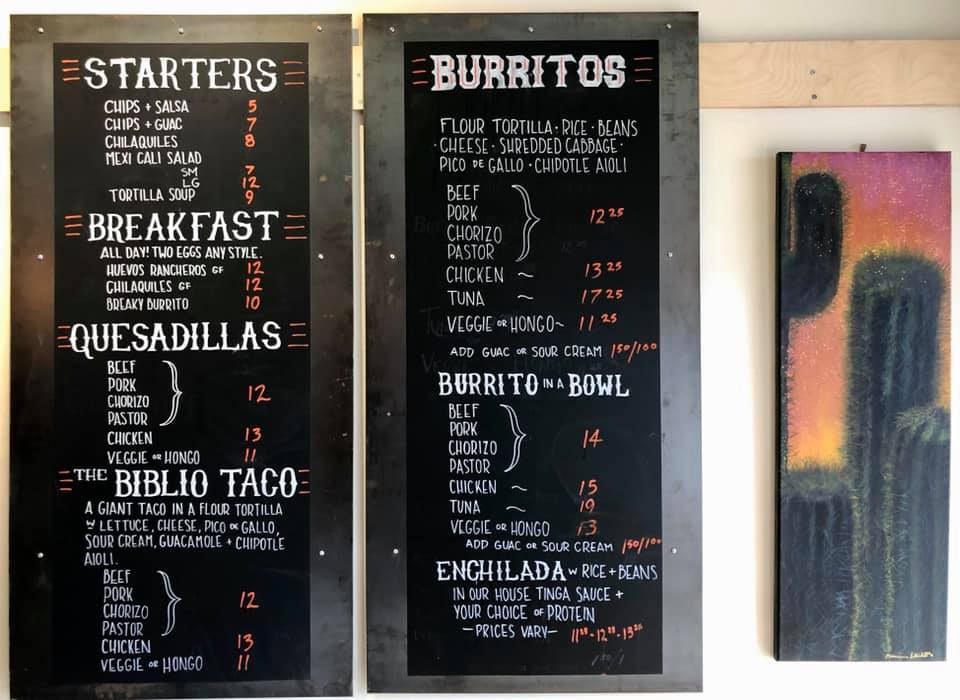 STARTERS
CHIPS + SALSA 5
CHIPS + GUAC 7
CHILAQUILES 8
MEXI CALI SALAD
SM 7
LG 12
TORTILLA SOUP 9
BREAKFAST
ALL DAY! TWO EGGS ANY STYLE.
HUEVOS RANCHEROS GF 12
CHILAQUILES GF 12
BREAKY BURRITO 10
QUESADILLAS
BEEF
PORK
CHORIZO
PASTOR
12
CHICKEN 13
VEGGIE OR HONGO 11
THE BIBLIO TACO
A GIANT TACO IN A FLOUR TORTILLA
W/ LETTUCE, CHEESE, PICO DE GALLO,
SOUR CREAM, GUACAMOLE + CHIPOTLE
AIOLI.
BEEF
PORK
CHORIZO
PASTOR
12
CHICKEN 13
VEGGIE OR HONGO 11
BURRITOS
FLOUR TORTILLA · RICE · BEANS
· CHEESE · SHREDDED CABBAGE ·
PICO DE GALLO · CHIPOTLE AIOLI
BEEF
PORK
CHORIZO
PASTOR
12 25
CHICKEN ~ 13 25
TUNA ~ 17 25
VEGGIE OR HONGO ~ 11 25
ADD GUAC OR SOUR CREAM 150/100
BURRITO IN A BOWL
BEEF
PORK
CHORIZO
PASTOR
14
CHICKEN ~ 15
TUNA ~ 19
VEGGIE OR HONGO 13
ADD GUAC OR SOUR CREAM 150/100
ENCHILADA W RICE + BEANS
IN OUR HOUSE TINGA SAUCE +
YOUR CHOICE OF PROTEIN
— PRICES VARY —